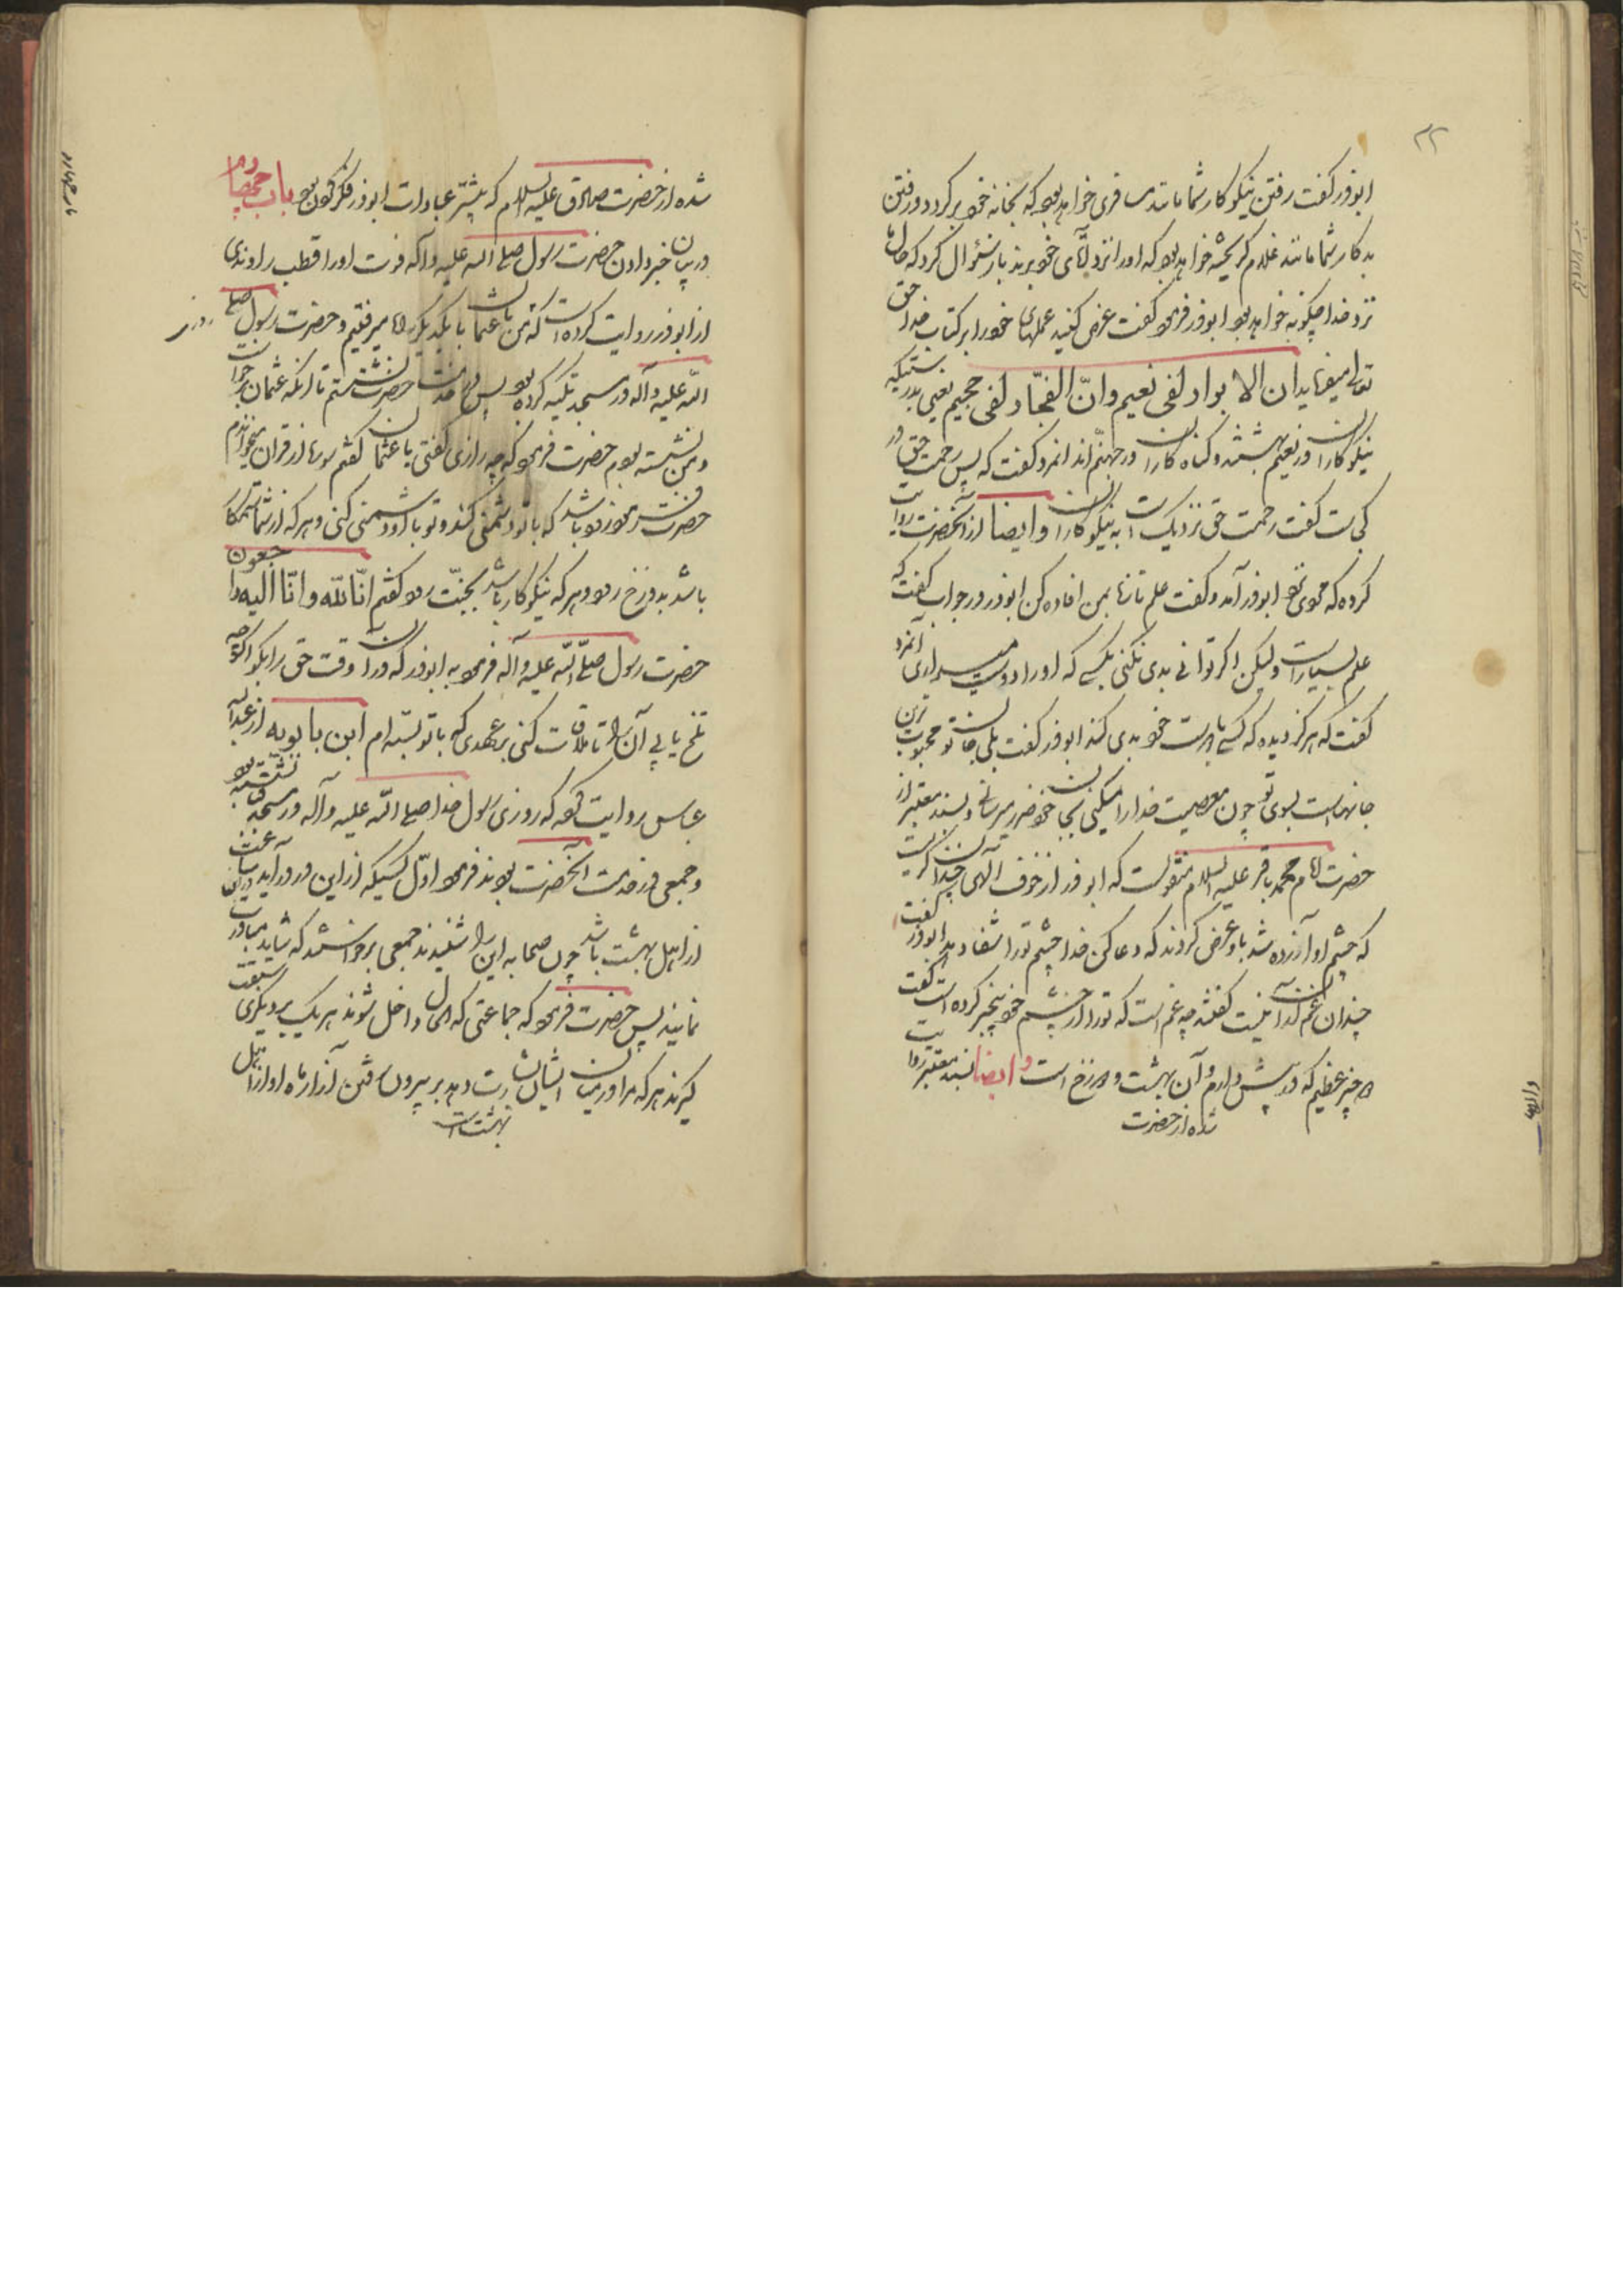 ۳۲
ابوذر گفت رفتن نیکوکار شما مانند مسافری خواهد بود که بخانه خود برگردد و رفتن
بدکار شما مانند غلام گریخته خواهد بود که او را نزد آقای خود برند باز سئوال کرد که حال ما
نزد خدا چگونه خواهد بود ابوذر فرمود گفت عرض کنید عملهای خود را بر کتاب خدا حق
تعالی میفرماید ان الابرار لفی نعیم وانّ الفجّار لفی جحیم یعنی بدرستیکه
نیکوکاران در نعیم بهشتند و گناه کاران در جهنّم اند انمرد گفت که پس رحمت حق در
کجاست گفت رحمت حق نزدیک است به نیکوکاران وایضا از آنحضرت روایت
کرده که مردی نزد ابوذر آمد و گفت علم تازه بمن افاده کن ابوذر در جواب گفت که
علم بسیار است ولیکن اگر توانی بدی نکنی بکسی که او را دوست میداری آنمرد
گفت که هرگز دیده که کسی با دوست خود بدی کند ابوذر گفت بلی جان تو محبوب ترین
جانهاست بسوی تو چون معصیت خدا را میکنی بجان خود ضرر میرسانی وبسند معتبر از
حضرت امام محمد باقر علیه السلام منقولست که ابوذر از خوف الهی چندان گریست
که چشم او آزرده شد باو عرض کردند که دعا کن خدا چشم تو را شفا دهد ابوذر گفت
چندان غم آن ندارم گفتند چه غم است که تو را از چشم خود بیخبر کرده است گفت
دو چیز عظیم که در پیش دارم و آن بهشت و دوزخ است وایضا بسند معتبر روایت
شده از حضرت
شده از حضرت صادق علیه السلام که بیشتر عبادات ابوذر فکر کردن بود باب چهارم
در بیان خبر دادن حضرت رسول صلی الله علیه وآله فوت او را قطب راوندی
از ابوذر روایت کرده است که من با عثمان با یکدیگر راه میرفتیم و حضرت رسول صلی
اللّه علیه وآله در مسجد تکیه کرده بود پس در خدمت حضرت نشستیم تا آنکه عثمان برخواست
و من نشسته بودم حضرت فرمود که چه راز می گفتی با عثمان گفتم سوره از قرآن میخواندم
حضرت فرمود زود باشد که با تو دشمنی کند و تو با او دشمنی کنی و هر که از شما ستمکار
باشد بدوزخ رود و هر که نیکوکار باشد بجنّت رود گفتم انّا للّه وانّا الیه راجعون
حضرت رسول صلّی اللّه علیه وآله فرمود به ابوذر که در آن وقت حق را بگو اگرچه
تلخ یابی آن را تا ملاقات کنی بر عهدی که با تو بسته ام ابن بابویه از عبداللّه
عباس روایت کرده که روزی رسول خدا صلی اللّه علیه وآله در مسجد قبا نشسته بود
و جمعی در خدمت آنحضرت بودند فرمود اوّل کسیکه از این در درآید در این ساعت
از اهل بهشت باشد چون صحابه این را شنیدند جمعی برخواستند که شاید مبادرت
نمایند پس حضرت فرمود که جماعتی که الحال داخل شوند هر یک بر دیگری سبقت
گیرند هر که مرا در میان ایشان بشارت دهد بر بیرون رفتن آزار ماه او از اهل
بهشت است